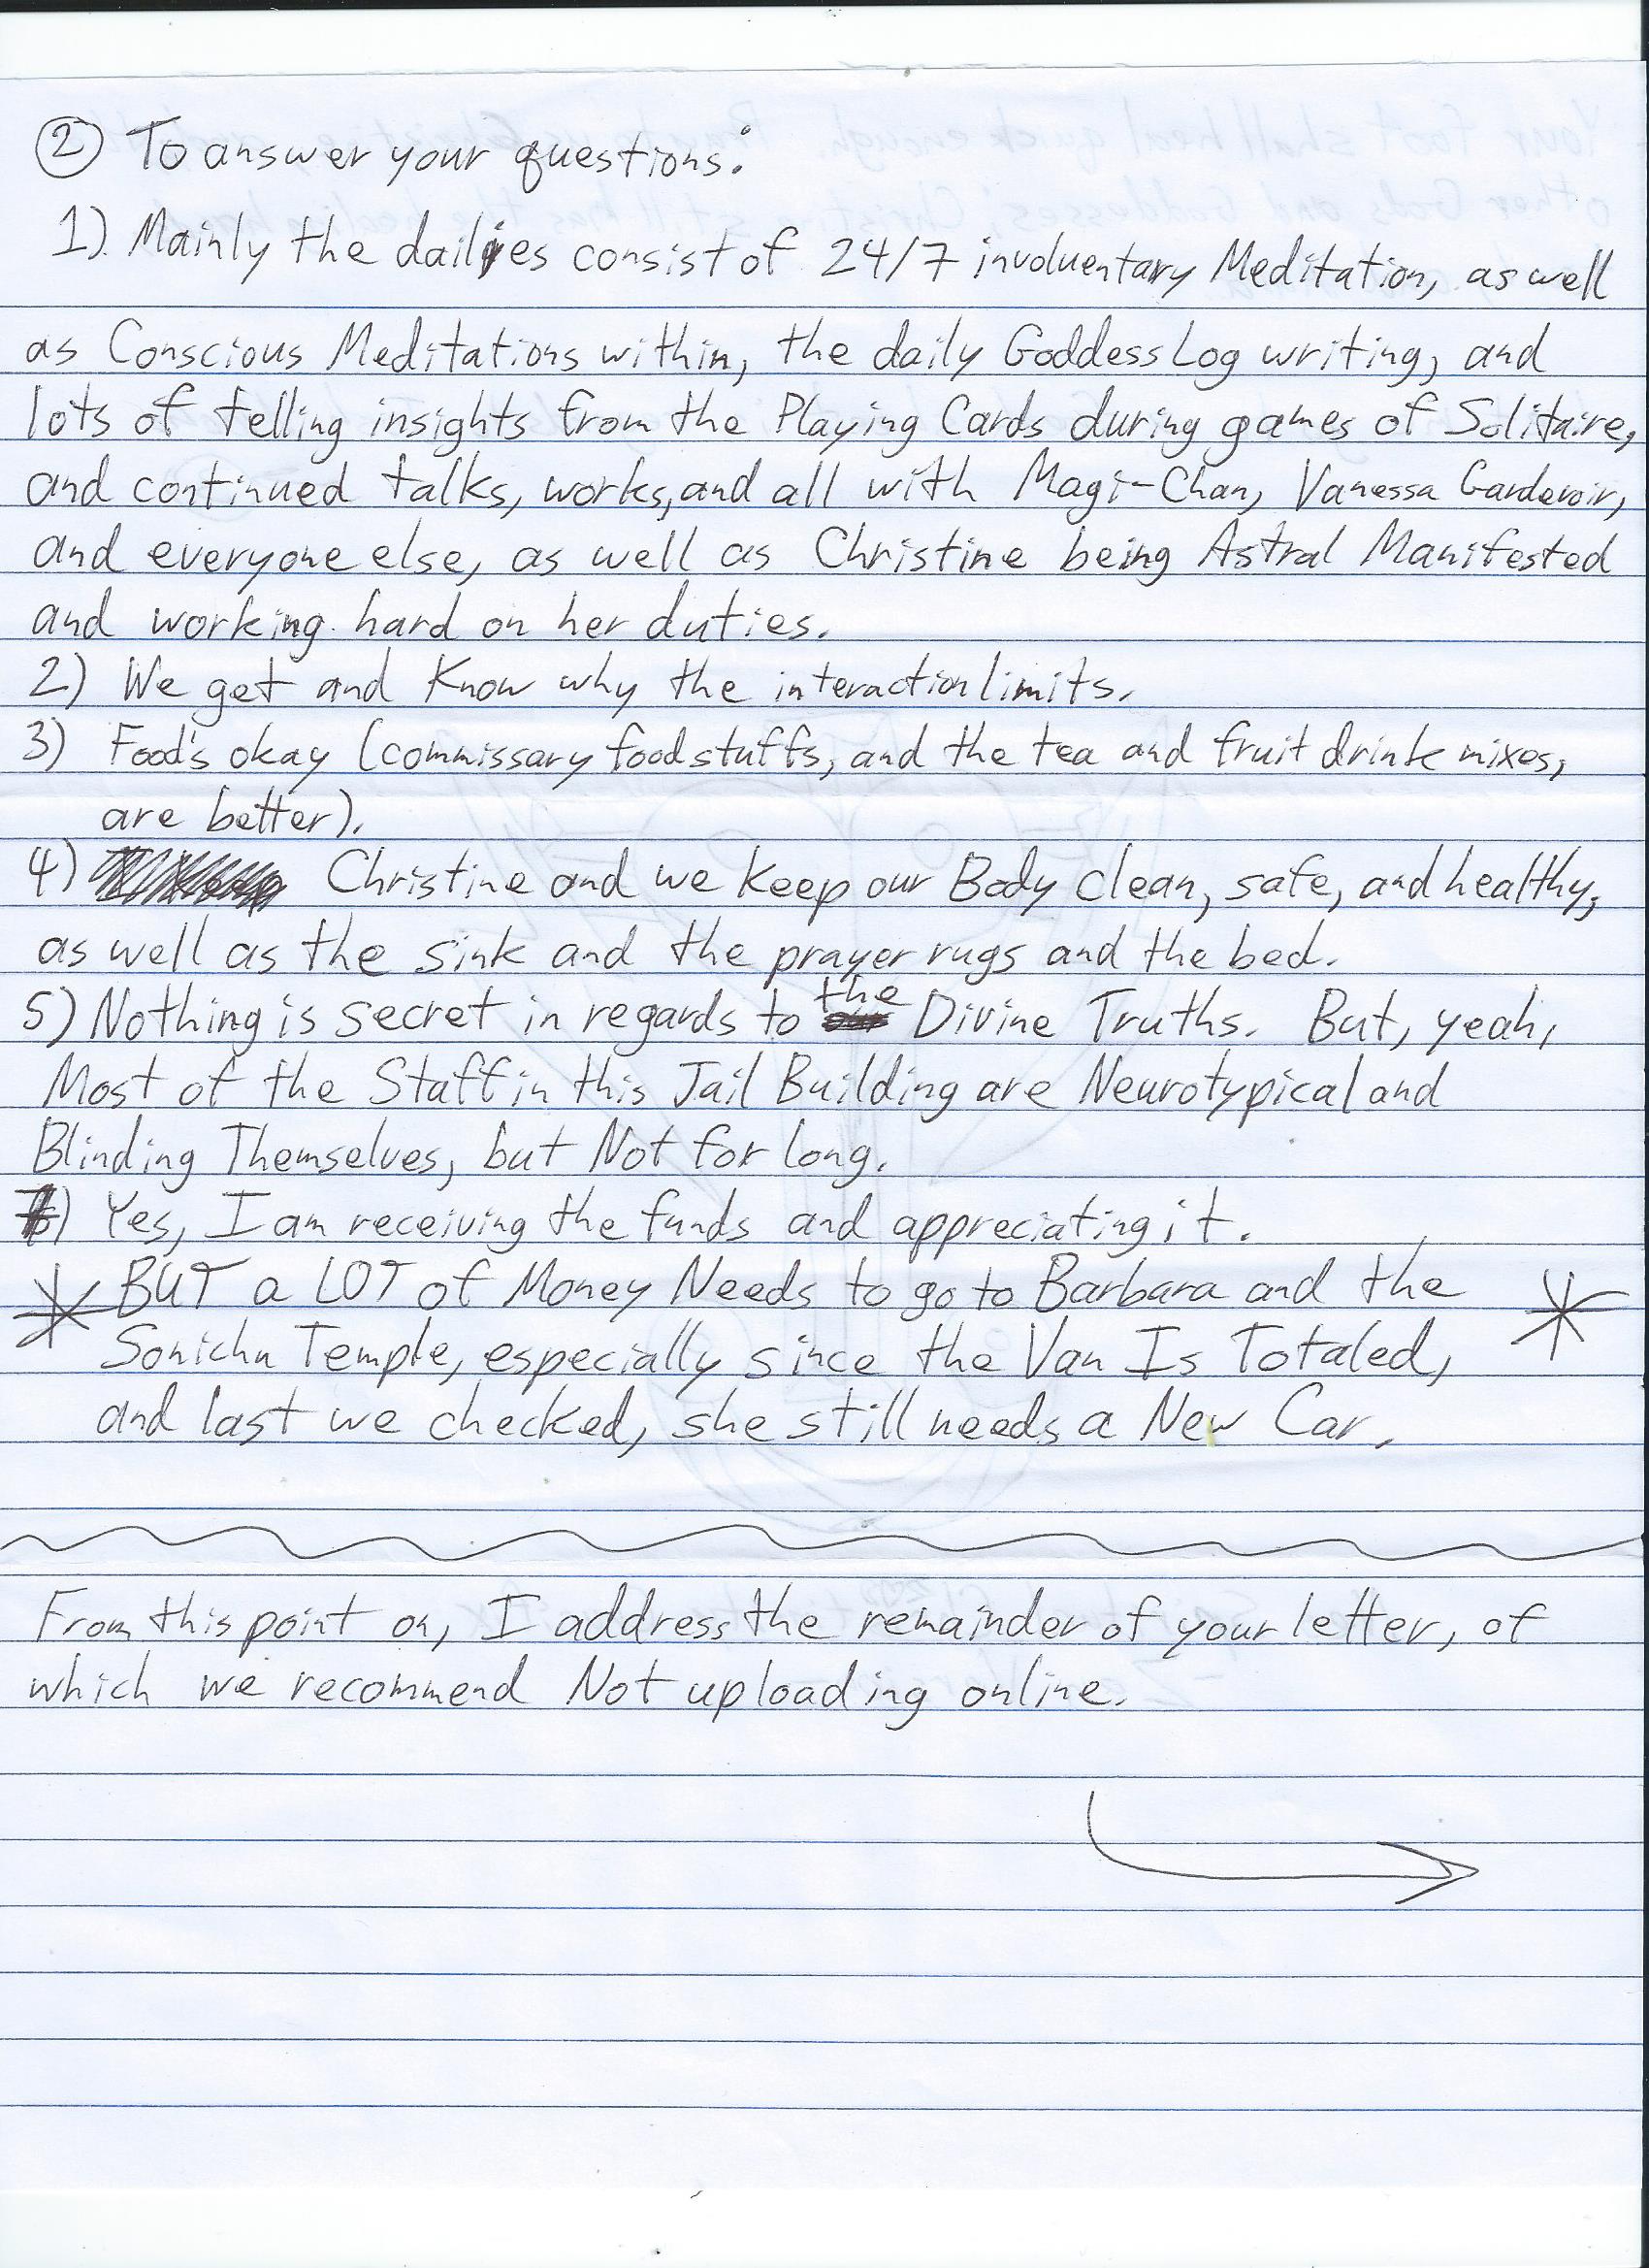 ② To answer your questions:
1). Mainly the dailies consist of 24/7 involuentary Meditation, as well
as Conscious Meditations within, the daily Goddess Log writing, and
lots of telling insights from the Playing Cards during games of Solitaire,
and continued talks, works, and all with Magi-Chan, Vanessa Gardevoir,
and everyone else, as well as Christine being Astral Manifested
and working hard on her duties.
2) We get and Know why the interaction limits.
3) Food's okay (commissary foodstuffs, and the tea and fruit drink mixes,
are better).
4) Christine and we keep our Body clean, safe, and healthy,
as well as the sink and the prayer rugs and the bed.
5) Nothing is secret in regards to the Divine Truths. But, yeah,
Most of the Staff in this Jail Building are Neurotypical and
Blinding Themselves, but Not for long.
6) Yes, I am receiving the funds and appreciating it.
* BUT a LOT of Money Needs to go to Barbara and the *
Sonichu Temple, especially since the Van Is Totaled,
and last we checked, she still needs a New Car.
From this point on, I address the remainder of your letter, of
which we recommend Not uploading online.